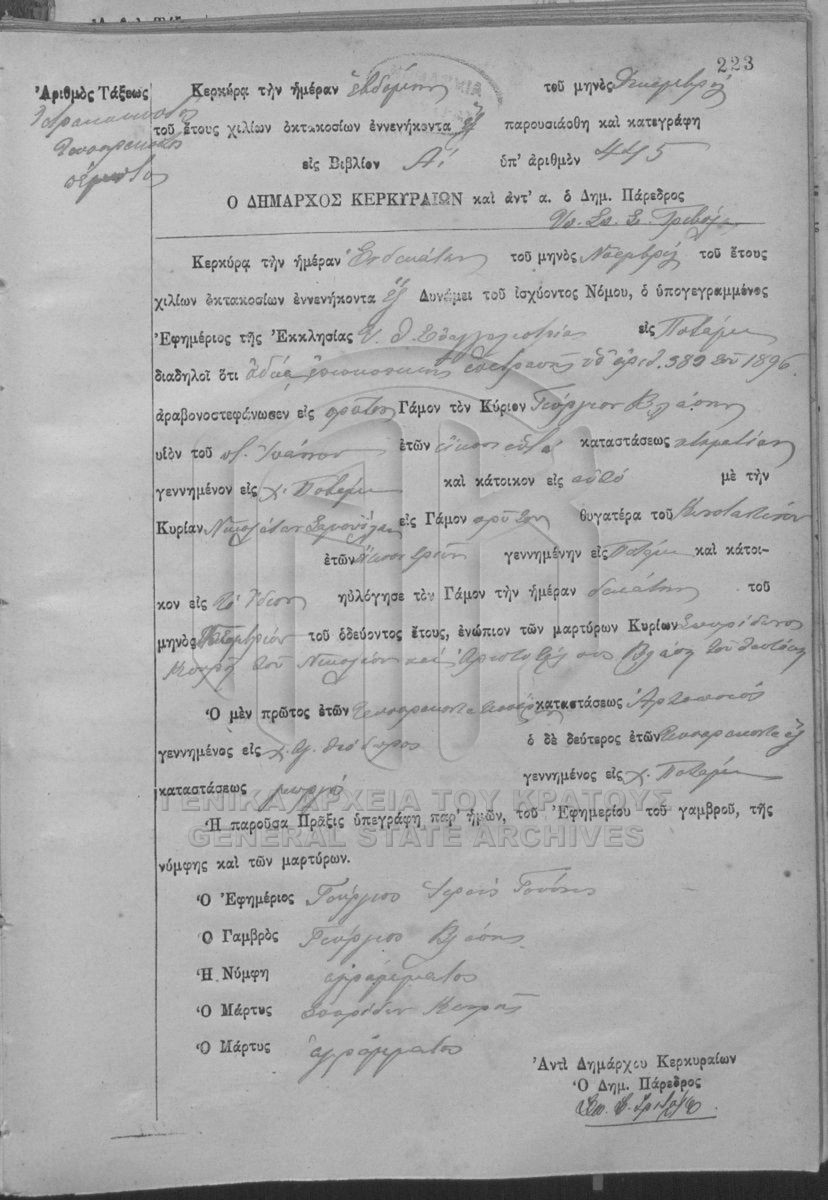 223
Ἀριθμὸς Τάξεως
Τετρακοσιοστὸς
Τεσσαρακοστὸς
πέμπτος
Κερκύρᾳ τὴν ἡμέραν ἑβδόμην τοῦ μηνὸς Δεκεμβρίου
τοῦ ἔτους χιλίων ὀκτακοσίων ἐννενήκοντα ἓξ παρουσιάσθη καὶ κατεγράφη
εἰς Βιβλίον Α! ὑπ' ἀριθμὸν 445
Ο ΔΗΜΑΡΧΟΣ ΚΕΡΚΥΡΑΙΩΝ καὶ ἀντ' α. ὁ Δημ. Πάρεδρος
Κερκύρᾳ τὴν ἡμέραν Ἑνδεκάτην τοῦ μηνὸς Νοεμβρίου τοῦ ἔτους
χιλίων ὀκτακοσίων ἐννενήκοντα ἓξ Δυνάμει τοῦ ἰσχύοντος Νόμου, ὁ ὑπογεγραμμένος
Ἐφημέριος τῆς Ἐκκλησίας Υ. Θ. Εὐαγγελιστρίας εἰς Ποταμὸν
διαδηλοῖ ὅτι ἀδείᾳ ἐπισκοπικῆς ἐπιτροπῆς ὑπ' ἀριθ. 389 τοῦ 1896
ἀραβονοστεφάνωσεν εἰς πρῶτον Γάμον τὸν Κύριον Γεώργιον Βλάσην
υἱὸν τοῦ Ἰωάννου ἐτῶν εἴκοσι ὀκτὼ καταστάσεως κτηματίαν
γεννημένον εἰς χ. Ποταμὸν καὶ κάτοικον εἰς αὐτό μὲ τὴν
Κυρίαν Νικολέταν εἰς Γάμον πρῶτον θυγατέρα τοῦ Κωνσταντίνου
ἐτῶν εἴκοσι τριῶν γεννημένην εἰς Ποταμὸν καὶ κάτοι-
κον εἰς τὸ ἴδιον ηὐλόγησε τὸν Γάμον τὴν ἡμέραν δεκάτην τοῦ
μηνὸς Νοεμβρίου τοῦ ὁδεύοντος ἔτους, ἐνώπιον τῶν μαρτύρων Κυρίων Σπυρίδωνος
τοῦ Νικολάου καὶ Ἀριστοτέλους Βλάση τοῦ
Ὁ μὲν πρῶτος ἐτῶν τεσσαράκοντα τεσσάρων καταστάσεως Ἀρτοποιὸς
γεννημένος εἰς χ. Ἁγ. Θεόδωρος ὁ δὲ δεύτερος ἐτῶν τεσσαράκοντα ἓξ
καταστάσεως γεωργὸς γεννημένος εἰς χ. Ποταμὸν
ΓΕΝΙΚΑ ΑΡΧΕΙΑ ΤΟΥ ΚΡΑΤΟΥΣ
Ἡ παροῦσα Πρᾶξις ὑπεγράφη παρ' ἡμῶν, τοῦ Ἐφημερίου τοῦ γαμβροῦ, τῆς
GENERAL STATE ARCHIVES
νύμφης καὶ τῶν μαρτύρων.
Ὁ Ἐφημέριος Γεώργιος Ἱερεὺς
Ὁ Γαμβρὸς Γεώργιος Βλάσης
Ἡ Νύμφη ἀγράμματος
Ὁ Μάρτυς Σπυρίδων
Ὁ Μάρτυς ἀγράμματος
Ἀντὶ Δημάρχου Κερκυραίων
Ὁ Δημ. Πάρεδρος